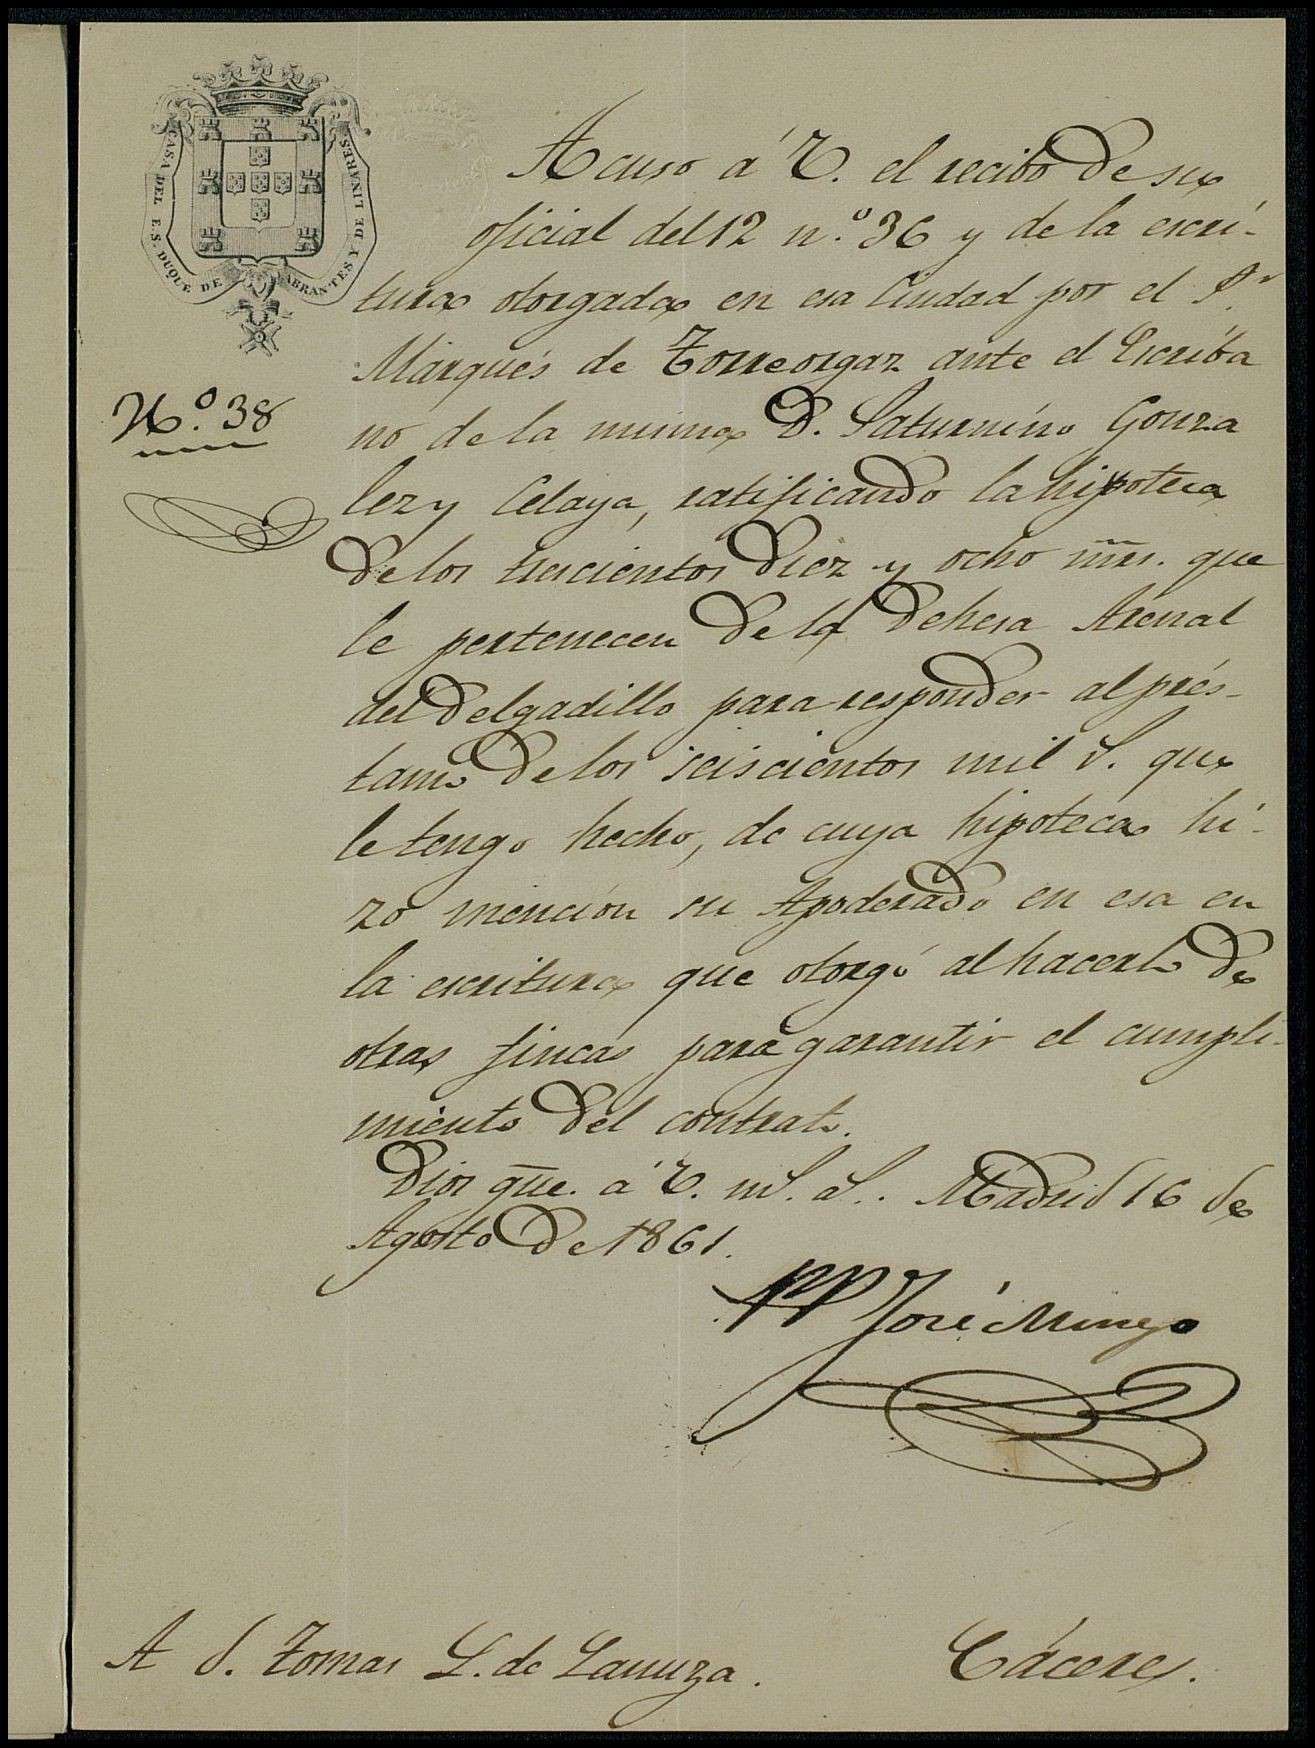 CASA DEL E.S. DUQUE DE ABRANTES Y DE LINARES
Nº. 38
Acuso á V. el recibo de su
oficial del 12 n.º 36 y de la escri-
tura otorgada en esa Ciudad por el Sr.
Marqués de Torreorgaz ante el Escriba
no de la misma D. Saturnino Gonza
lez y Celaya, ratificando la hipoteca
de los trescientos diez y ocho mrs. que
le pertenecen de la dehesa Arenal
del Delgadillo para responder al prés-
tamo de los seiscientos mil r. que
le tengo hecho, de cuya hipoteca hi-
zo mención su Apoderado en esa en
la escritura que otorgó al hacerlo de
otras fincas para garantir el cumpli-
miento del contrato.
Dios gue. á V. m. a. Madrid 16 de
Agosto de 1861.
PP José Mingo
A D. Tomas L. de Lanuza. Cáceres.